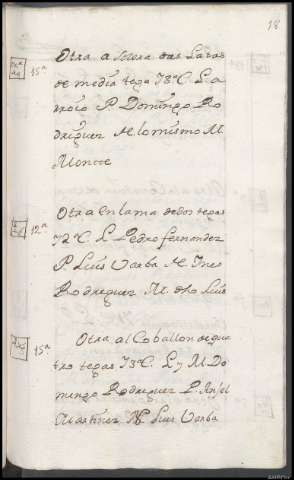 18
15ª
Otra a
de media tega 78ºC. L
P. Domingo Ro
driguez M. lo mismo M.
Montte
12ª
Otra en lama de dos tegas
72ºC. L. Pedro fernandez
P. Luis Varba M. Ines
Rodreguez M. dho Luis
15ª
Otra, al Coballon de qua
tro tegas 73ºC. L. y M. Do
mengo Rodreguez P.
Martinez N. Luis Varba